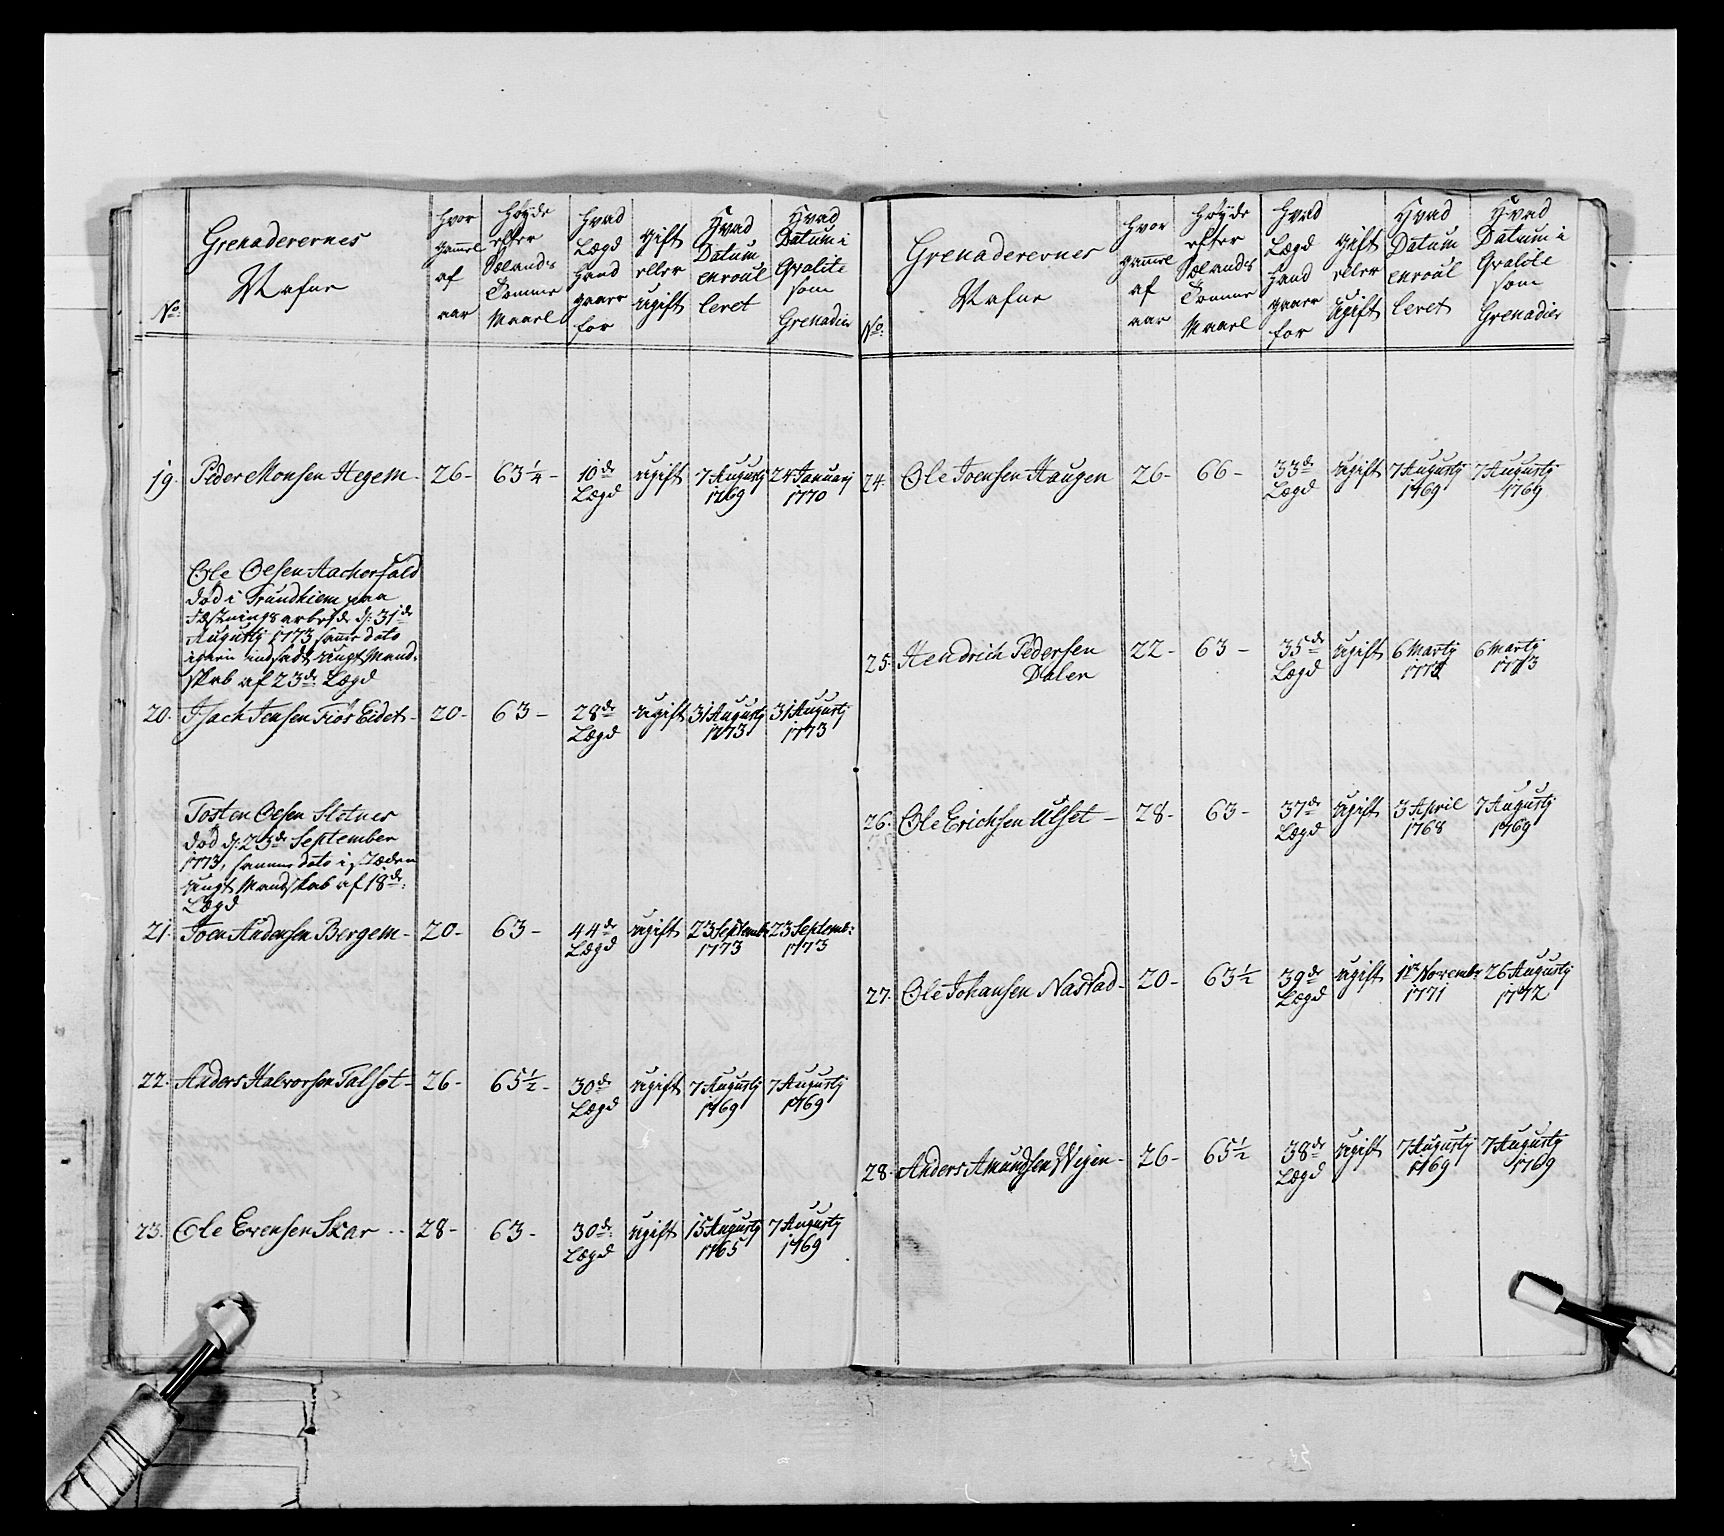 No:
Grenaderernes
Nafne
hvor
gamel
af
aar
Høyde
efter
Sælands
Tomme
Maael
hvad
Lægd
Hand
gaaer
for
gift
eller
ugift
Hvad
Datum
enroul
leret
Hvad
Datum i
Qvalite
som
Grenadier
19. Peder Monsen Hegem - 26 - 63 1/4 - 10de Lægd ugift 7 Augustj 1769 24 Januarj 1770
Ole Olsen Aackersold
død i Trundhiem paa
Fæstnings arbejde d: 31de
Augustj 1773 samme dato
igien indsadt ungt Mand-
skab af 23de Lægd
20. Isach Jensen Fiøs Eidet - 20 - 63 - 28de Lægd ugift 31 Augustj 1773 31 Augustj 1773
Tosten Olsen Sletnes
død d: 23de September
1773, samme dato i stæden
ungt Mandskab af 18de
Lægd
21. Joen Andersen Bergem - 20 - 63 - 44de Lægd ugift 23 Septembr 1773 23 Septembr: 1773
22. Anders Halvorsen Talset - 26 - 65 1/2 - 30de Lægd ugift 7 Augustj 1769 7 Augustj 1769
23. Ole Evensen Skar - - 28 - 63 - 30de Lægd ugift 15 Augustj 1765 7 Augustj 1769
No:
Grenaderernes
Nafne
hvor
gamel
af
aar
Høyde
efter
Sælands
Tomme
Maael
hvad
Lægd
Hand
gaaer
for
gift
eller
Ugift
Hvad
Datum
enroul
leret
Hvad
Datum i
Qvalite
som
Grenadier
24. Ole Joensen Haugen 26 - 66 - 33de Lægd ugift 7 Augustj 1769 7 Augustj 1769
25. Hendrich Pedersen Dalen 22 - 63 - 35de Lægd ugift 6 Martj 1773 6 Martj 1773
26. Ole Erichsen Ulset - 28 - 63 - 37de Lægd ugift 3 April 1768 7 Augustj 1769
27. Ole Johansen Nastad - 20 - 63 1/2 39de Lægd ugift 1te Novembr 1771 26 Augustj 1772
28. Anders Amundsen Wejen - 26 - 65 1/2 38de Lægd ugift 7 Augustj 1769 7 Augustj 1769